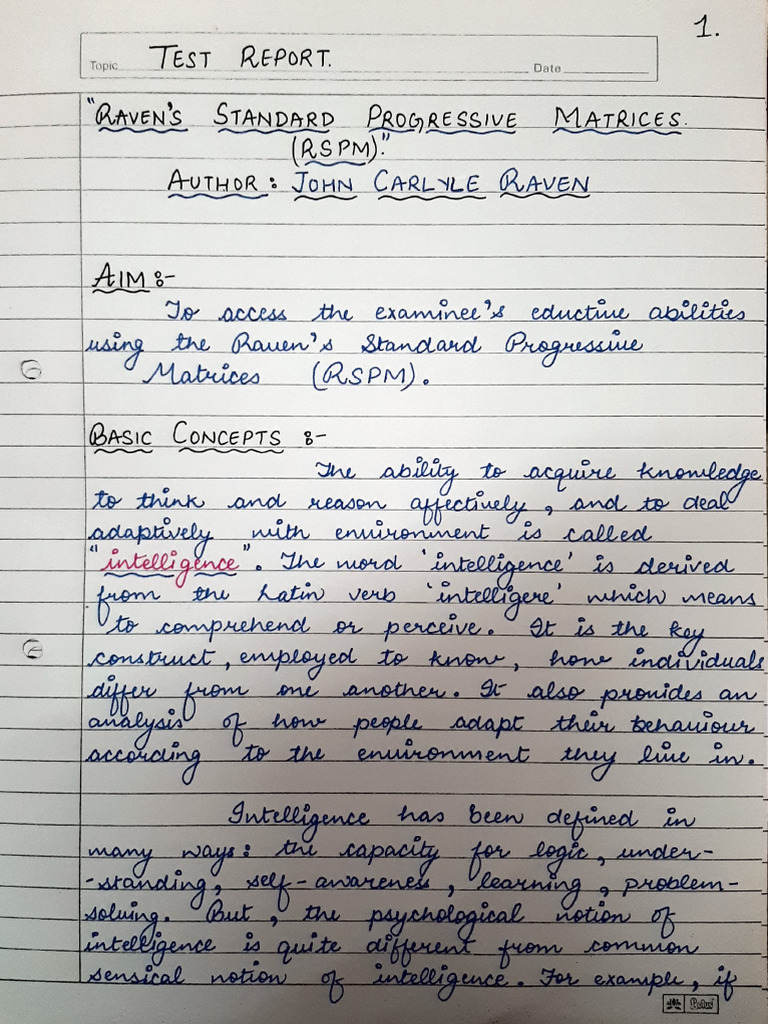 1.
Topic TEST REPORT. Date
"RAVEN'S STANDARD PROGRESSIVE MATRICES.
(RSPM)."
AUTHOR: JOHN CARLYLE RAVEN
AIM :-
To access the examinee's eductive abilities
using the Raven's Standard Progressive
Matrices (RSPM).
BASIC CONCEPTS :-
The ability to acquire knowledge
to think and reason affectively, and to deal
adaptively with environment is called
"intelligence". The word 'intelligence' is derived
from the Latin verb 'intelligere' which means
to comprehend or perceive. It is the key
construct, employed to know, how individuals
differ from one another. It also provides an
analysis of how people adapt their behaviour
according to the environment they live in.
Intelligence has been defined in
many ways: the capacity for logic, under-
-standing, self-awareness, learning, problem-
solving. But, the psychological notion of
intelligence is quite different from common
sensical notion of intelligence. For example, if